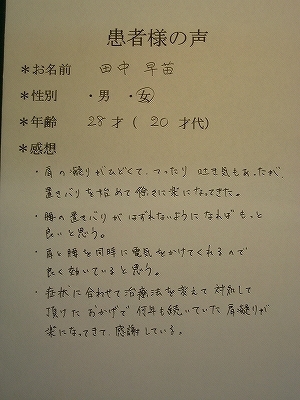 患者様の声
＊お名前　田中　早苗
＊性別　・男　・女
＊年齢　28才（20才代）
＊感想
・肩の凝りがひどくて、つったり 吐き気もあったが、
置きバリを始めて徐々に楽になってきた。
・腰の置きバリが はずれないようになれば もっと
良いと思う。
・肩と腰を同時に電気をかけてくれるので
良く効いていると思う。
・症状に合わせて治療法を変えて 対処して
頂けた おかげで 何年も続いていた 肩凝りが
楽になってきて、感謝している。